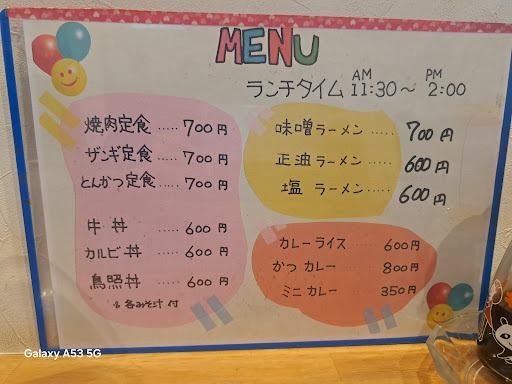 MENU
ランチタイム AM 11:30〜 PM 2:00
焼肉定食 ..... 700円
ザンギ定食 ..... 700円
とんかつ定食 ..... 700円
牛丼 ..... 600円
カルビ丼 ..... 600円
鳥照丼 ..... 600円
各みそ汁付
味噌ラーメン ..... 700円
正油ラーメン ..... 600円
塩 ラーメン ..... 600円
カレーライス ..... 600円
かつカレー ..... 800円
ミニカレー ..... 350円
Galaxy A53 5G